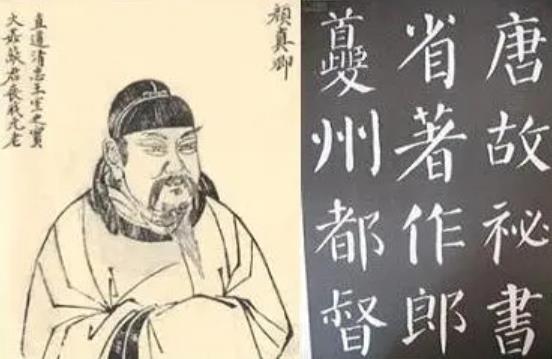 顏真卿
直道清忠王室之寶
君元老
唐故祕書
省著作郎
夔州都督